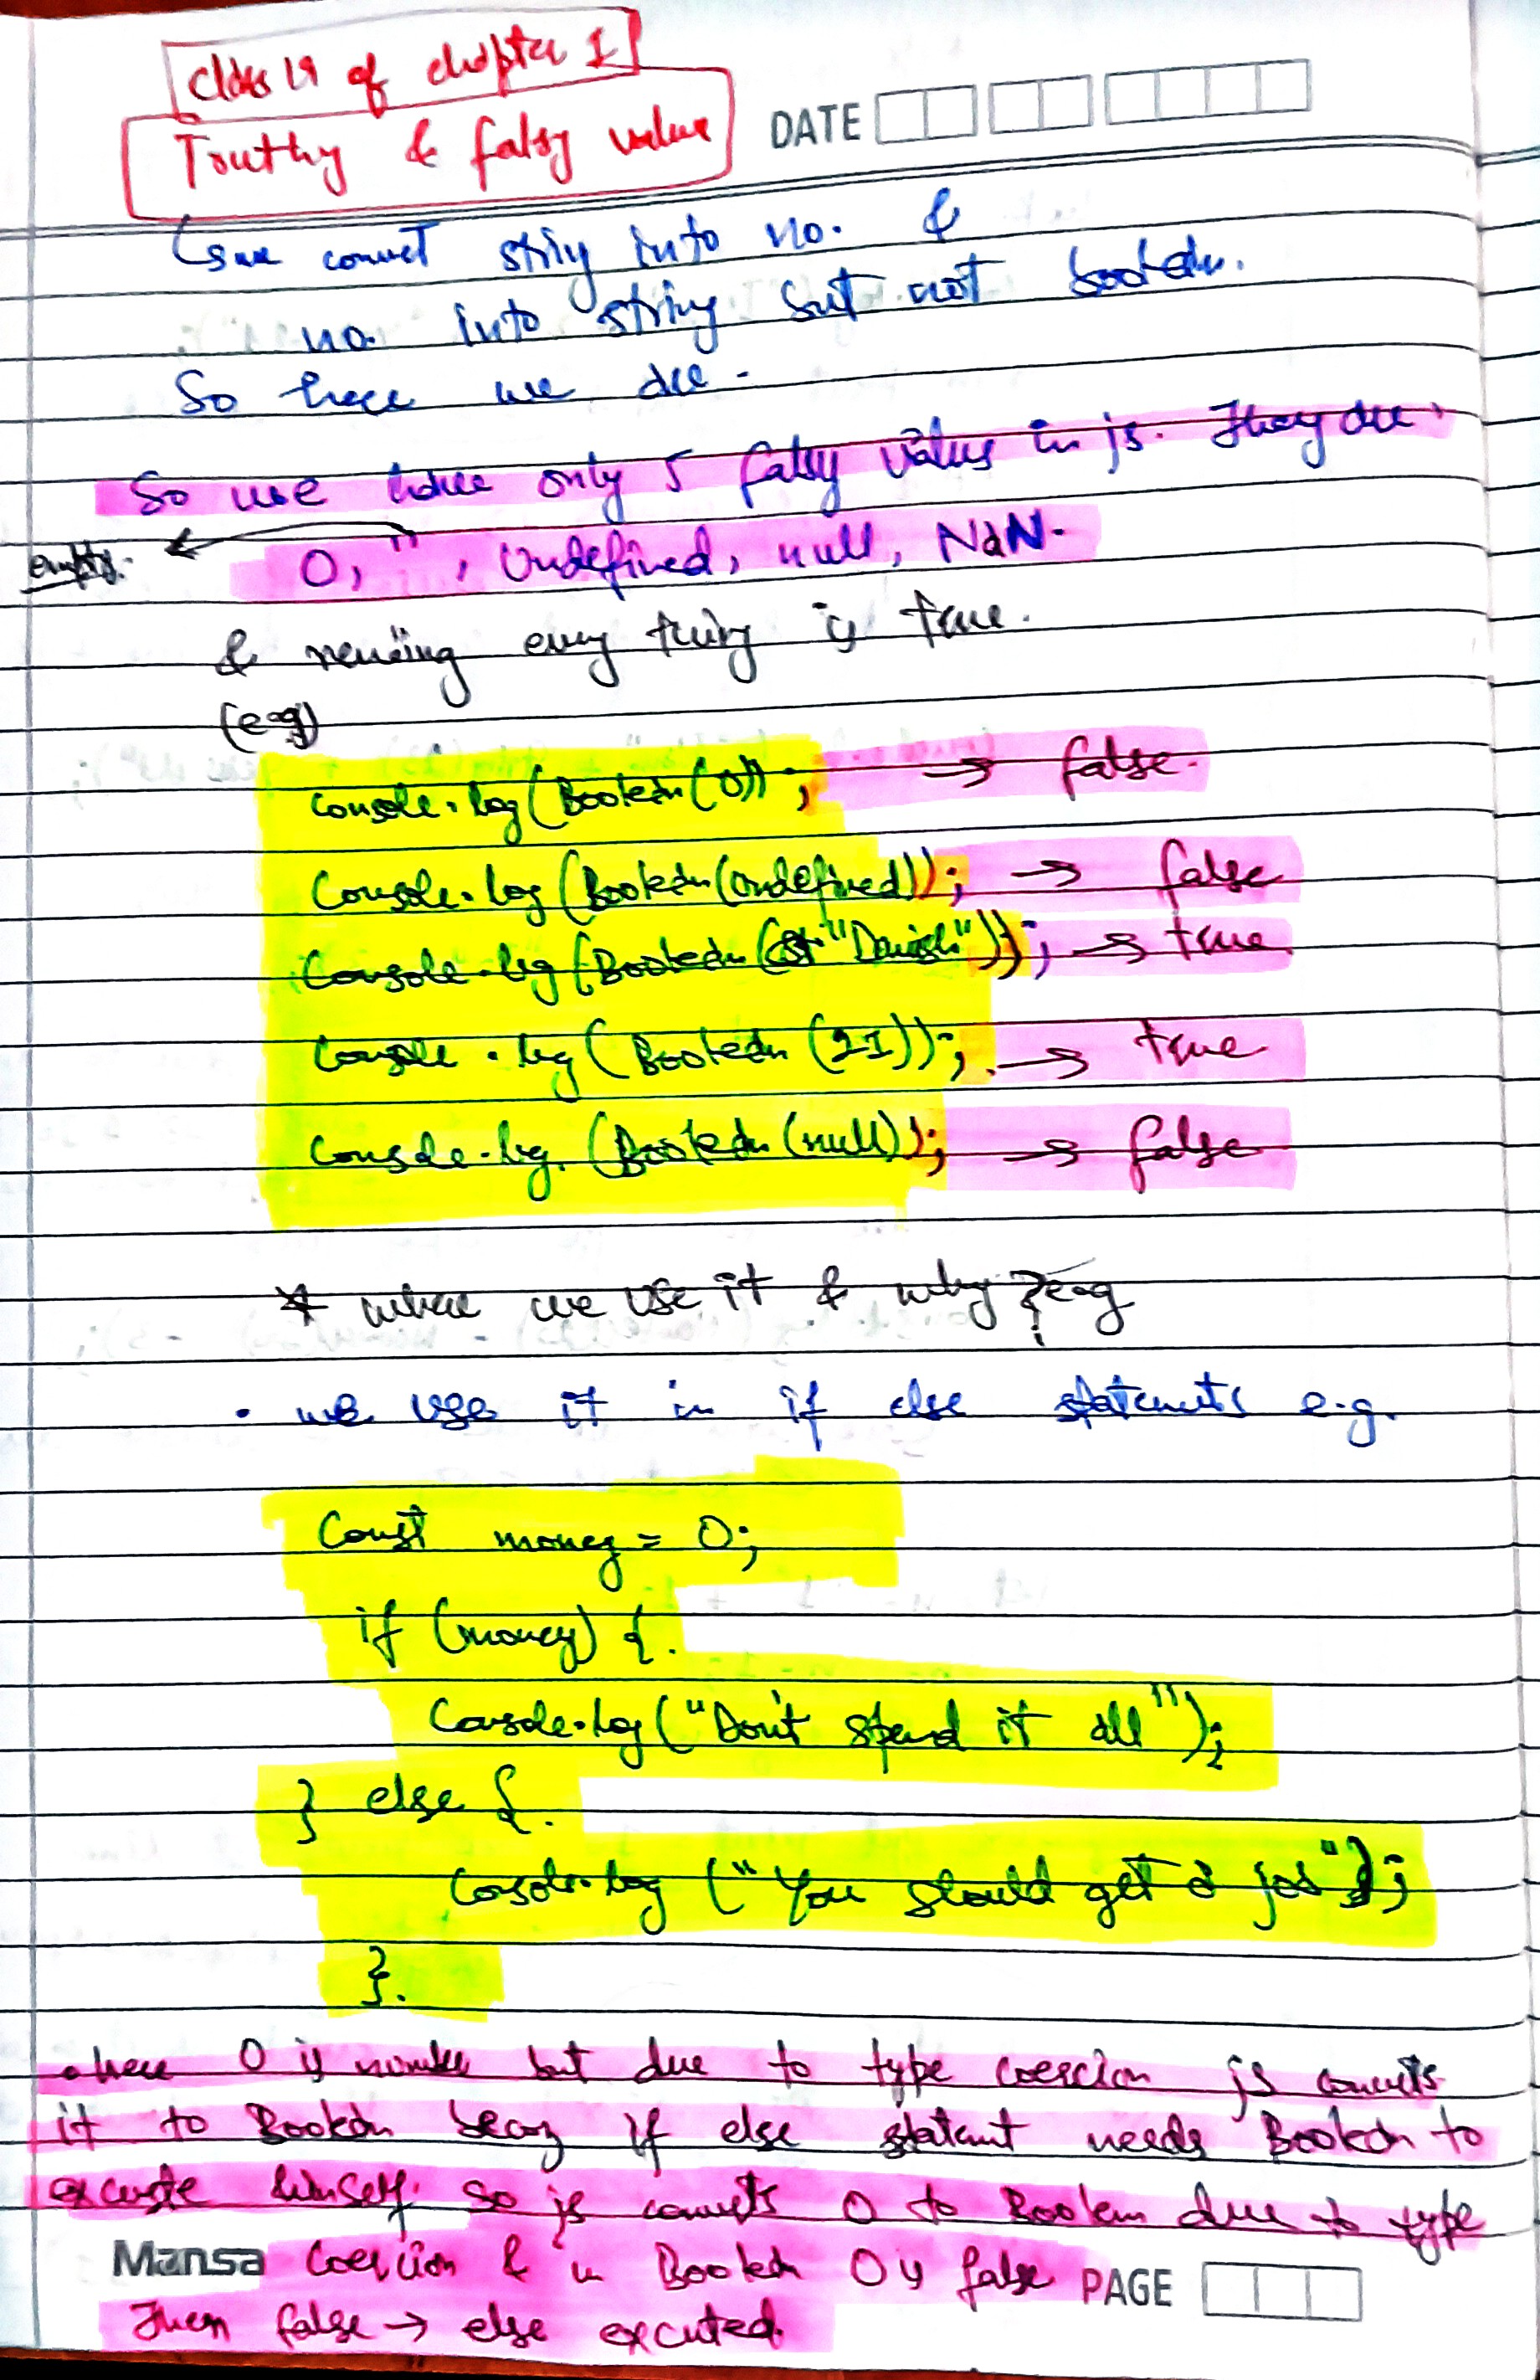 Class 19 of chapter 1
Truthy & falsy value
DATE
we convert string into no. &
no. into string but not boolean.
So here we are.
So we have only 5 falsy values in js. They are.
empty. 0, '', Undefined, null, NaN.
& remaining every thing is true.
(e.g)
console.log(Boolean(0)); → false.
Console.log(Boolean(undefined)); → false
Console.log(Boolean("Danish")); → true
Console.log(Boolean(21)); → true
Console.log(Boolean(null)); → false
* where we use it & why? e.g
• we use it in if else statements e.g.
Const money = 0;
if (money) {.
Console.log("Don't spend it all");
} else {.
Console.log("You should get a job");
}.
• here 0 is number but due to type coercion js converts
it to Boolean becoz if else statement needs Boolean to
execute himself. so js converts 0 to Boolean due to type
Mansa coercion & in Boolean 0 is false PAGE
Then false → else executed.